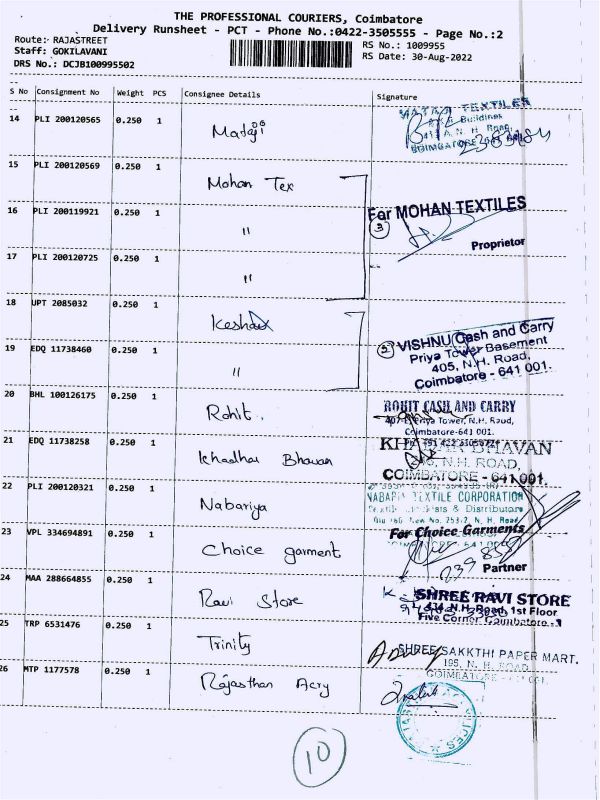 THE PROFESSIONAL COURIERS, Coimbatore
Delivery Runsheet - PCT - Phone No.:0422-3505555 - Page No.:2
Route:- RAJASTREET
Staff: GOKILAVANI
DRS No.: DCJB100995502
RS No.: 1009955
RS Date: 30-Aug-2022
S No Consignment No Weight PCS Consignee Details Signature
14 PLI 200120565 0.250 1 Mataji
TEXTILES
Buildings
N. H. Road,
15 PLI 200120569 0.250 1 Mohan Tex
16 PLI 200119921 0.250 1 "
For MOHAN TEXTILES
3
Proprietor
17 PLI 200120725 0.250 1 "
18 UPT 2085032 0.250 1
19 EDQ 11738460 0.250 1 "
2 VISHNU Cash and Carry
Priya Tower Basement
405, N.H. Road,
Coimbatore - 641 001.
20 BHL 100126175 0.250 1 Rohit.
ROHIT CASH AND CARRY
Priya Tower, N.H. Road,
Coimbatore-641 001.
21 EDQ 11738258 0.250 1 Khadhar Bhavan
BHAVAN
N.H. ROAD,
COIMBATORE - 641 001.
22 PLI 200120321 0.250 1 Nabariya
TEXTILE CORPORATION
& Distributors
New No. 253/2, N. H. Road
23 VPL 334694891 0.250 1 Choice garment
For Choice Garments
Partner
24 MAA 288664855 0.250 1 Ravi Store
SHREE RAVI STORE
434, N.H. Road, 1st Floor
Five Corner, Coimbatore.-1
25 TRP 6531476 0.250 1 Trinity
SHREE SAKKTHI PAPER MART.
195, N. H. ROAD,
COIMBATORE
26 MTP 1177578 0.250 1 Rajasthan Acry
10